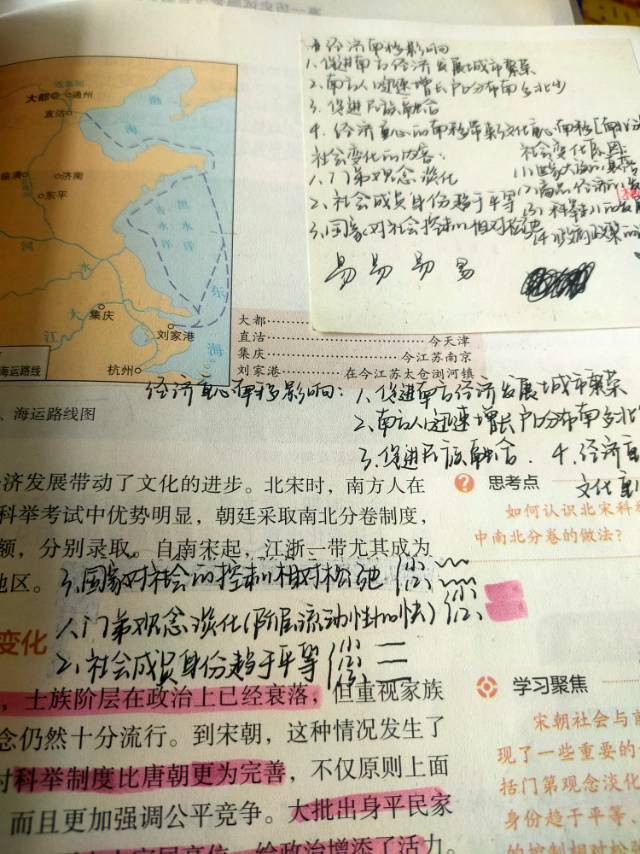 经济南移影响
1、促进南方经济发展城市繁荣
2、南方人口迅速增长 户口分布南多北少
3、促进民族融合
4、经济重心的南移带来文化重心南移
社会变化的内容：
1、门第观念淡化
2、社会成员身份趋于平等
3、国家对社会控制相对松弛
社会变化原因：
(2)商品经济的发
(3)科举制的发展
(4)政府政策的
易 易 易 易
渤
海
大都
通州
直沽
临清
济南
东平
青水洋
黑水洋
河
水
江
大
集庆
刘家港
东
海
杭州
海运路线
、海运路线图
大都
直沽……今天津
集庆……今江苏南京
刘家港……在今江苏太仓浏河镇
经济重心南移影响：1、促进南方经济发展城市繁荣
2、南方人口迅速增长 户口分布南多北
3、促进民族融合. 4、经济重
文化重
济发展带动了文化的进步。北宋时，南方人在
科举考试中优势明显，朝廷采取南北分卷制度，
额，分别录取。自南宋起，江浙一带尤其成为
地区。
? 思考点
如何认识北宋科
中南北分卷的做法？
3、国家对社会的控制相对松弛 (1)、 (2)、
1、门第观念淡化(阶层流动性加快) (1)、 (2)、
2、社会成员身份趋于平等 (1) (2) (3)
变化
，士族阶层在政治上已经衰落，但重视家族
念仍然十分流行。到宋朝，这种情况发生了
时科举制度比唐朝更为完善，不仅原则上面
而且更加强调公平竞争。大批出身平民家
给政治增添了活力。
学习聚焦
宋朝社会与前
现了一些重要的
括门第观念淡化
身份趋于平等、
的控制相对松弛